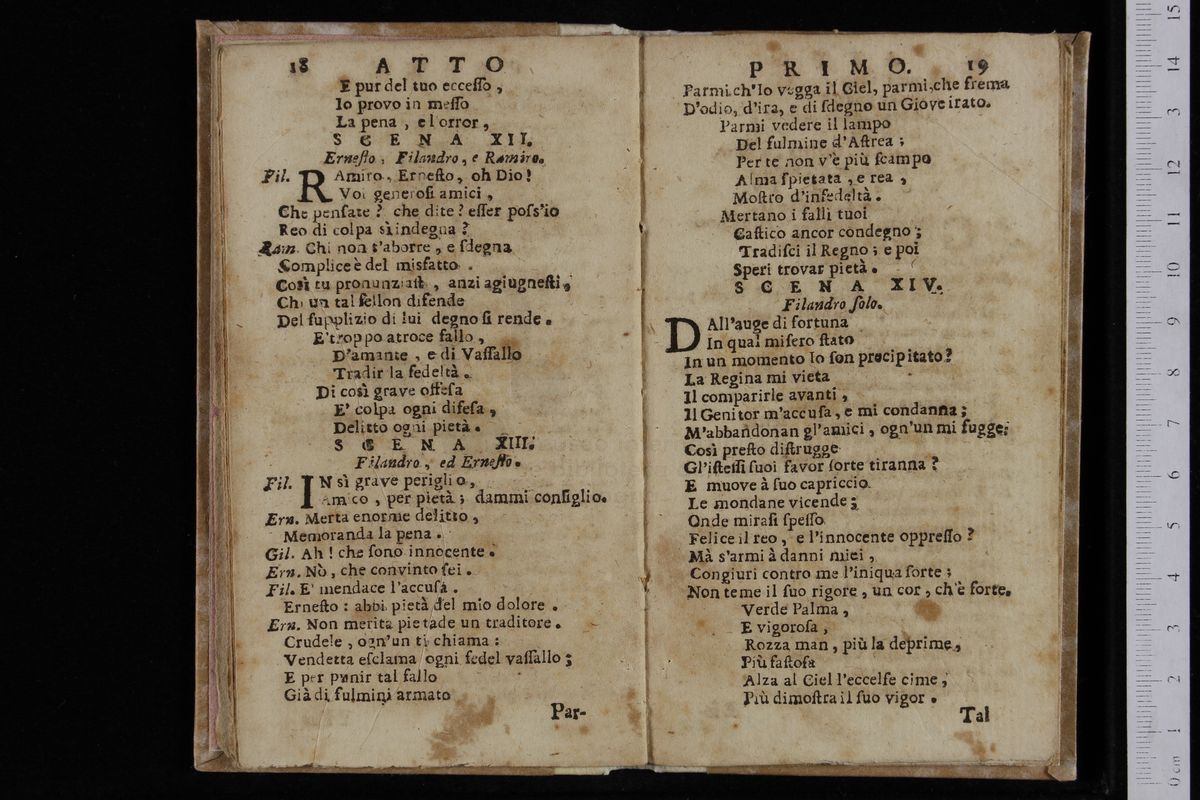 18 ATTO
E pur del tuo ecceſſo,
Io provo in meſſo
La pena, e l'orror,
SCENA XII.
Erneſto, Filandro, e Ramiro.
Fil. RAmiro, Erneſto, oh Dio!
Voi generoſi amici,
Che penſate? che dite? eſſer poſs'io
Reo di colpa sì indegna?
Ram. Chi non t'aborre, e ſdegna
Complice è del misfatto.
Così tu pronunziaſt, anzi agiugneſti,
Chi un tal fellon difende
Del ſupplizio di lui degno ſi rende.
E'troppo atroce fallo,
D'amante, e di Vaſſallo
Tradir la fedeltà.
Di così grave offeſa
E' colpa ogni difeſa,
Delitto ogni pietà.
SCENA XIII.
Filandro, ed Erneſto.
Fil. IN sì grave periglio,
Amico, per pietà; dammi conſiglio.
Ern. Merta enorme delitto,
Memoranda la pena.
Gil. Ah! che ſono innocente.
Ern. Nò, che convinto ſei.
Fil. E' mendace l'accuſa.
Erneſto: abbi pietà del mio dolore.
Ern. Non merita pietade un traditore.
Crudele, ogn'un ti chiama:
Vendetta eſclama ogni fedel vaſſallo;
E per punir tal fallo
Già di fulmini armato
Par-
PRIMO. 19
Parmi ch'Io vegga il Ciel, parmi che frema
D'odio, d'ira, e di ſdegno un Giove irato.
Parmi vedere il lampo
Del fulmine d'Aſtrea;
Per te non v'è più ſcampo
Alma ſpietata, e rea,
Moſtro d'infedeltà.
Mertano i falli tuoi
Caſtico ancor condegno;
Tradiſci il Regno; e poi
Speri trovar pietà.
SCENA XIV.
Filandro ſolo.
DAll'auge di fortuna
In qual miſero ſtato
In un momento Io ſon precipitato?
La Regina mi vieta
Il comparirle avanti,
Il Genitor m'accuſa, e mi condanna;
M'abbandonan gl'amici, ogn'un mi fugge;
Così preſto diſtrugge
Gl'iſteſſi ſuoi favor ſorte tiranna?
E muove à ſuo capriccio
Le mondane vicende;
Onde miraſi ſpeſſo
Felice il reo, e l'innocente oppreſſo?
Mà s'armi à danni miei,
Congiuri contro me l'iniqua ſorte;
Non teme il ſuo rigore, un cor, ch'è forte.
Verde Palma,
E vigoroſa,
Rozza man, più la deprime,
Più faſtoſa
Alza al Ciel l'eccelſe cime,
Più dimoſtra il ſuo vigor.
Tal
0 cm 1 2 3 4 5 6 7 8 9 10 11 12 13 14 15